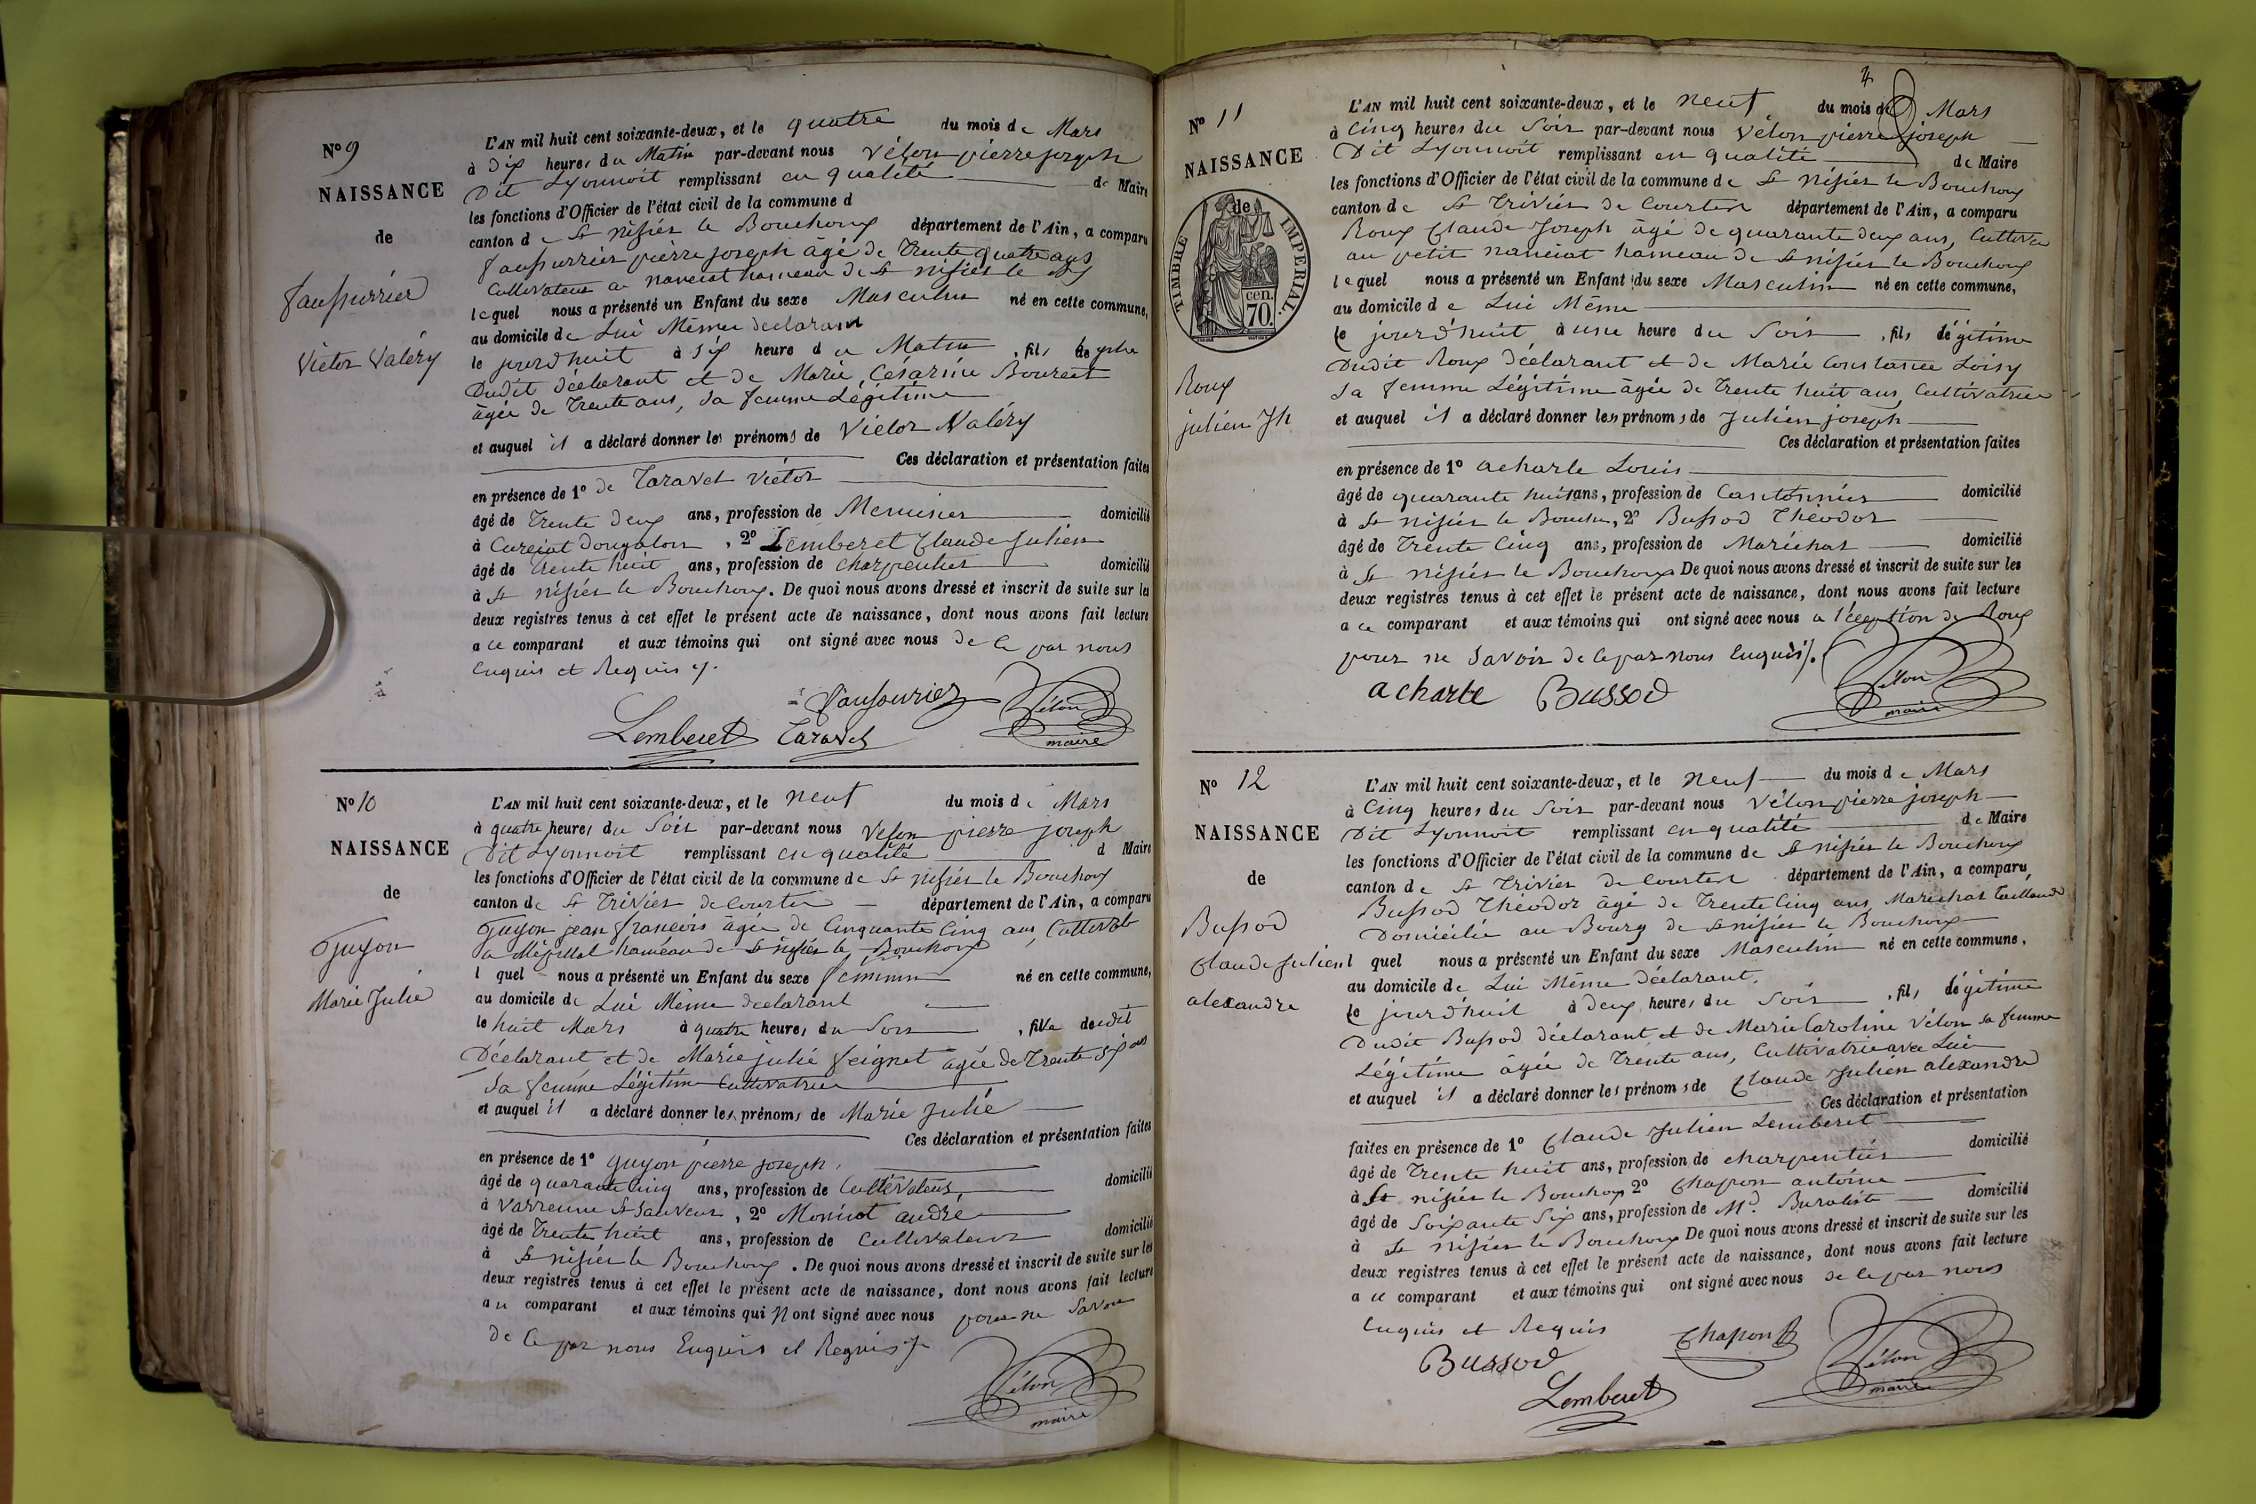 No 9
NAISSANCE
de
Faussurier
Victor Valéry
L'AN mil huit cent soixante-deux, et le quatre du mois de Mars
à Dix heures du Matin par-devant nous Vélon pierre joseph
Dit Lyonnoit remplissant en qualité de Maire
les fonctions d'Officier de l'état civil de la commune d
canton de St nisier le Bouchoux département de l'Ain, a comparu
faussurrier pierre joseph âgé de Trente quatre ans
Cultivateur au nanciat hameau de St nisier le
lequel nous a présenté un Enfant du sexe Masculin né en cette commune,
au domicile de Lui Même declarant
le jourd'huit à Six heure du Matin , fils
Dudit déclarant et de Marie Césarine Bourcet
âgée de Trente ans, Sa femme Légitime
et auquel il a déclaré donner les prénoms de Victor Valéry
Ces déclaration et présentation faites
en présence de 1º de Taravel Victor
âgé de Trente Deux ans, profession de Menuisier domicilié
à Curciat Dongalon , 2º Lemberet Claude Julien
âgé de Trente huit ans, profession de charpentier domicilié
à St nisier le Bouchoux. De quoi nous avons dressé et inscrit de suite sur les
deux registres tenus à cet effet le présent acte de naissance, dont nous avons fait lecture
a ce comparant et aux témoins qui ont signé avec nous de ce par nous
Enquis et Requis
faussurier Vélon
Lemberet Taravel maire
No 10
NAISSANCE
de
Guyon
Marie Julie
L'AN mil huit cent soixante-deux, et le neuf du mois de Mars
à quatre heures du Soir par-devant nous Velon pierre joseph
Dit Lyonnoit remplissant en qualité d Maire
les fonctions d'Officier de l'état civil de la commune de St nisier le Bouchoux
canton de St Trivier de Courte département de l'Ain, a comparu
Guyon jean françois âgée de Cinquante Cinq ans, Cultivat
a Mépillat hameau de St nisier le Bouchoux
l quel nous a présenté un Enfant du sexe féminin né en cette commune,
au domicile de Lui Même declarant
le huit Mars à quatre heures du Soir , fille dudit
Déclarant et de Marie julie feignet agée de Trente Six ans
Sa femme Légitime Cultivatrice
et auquel il a déclaré donner les prénoms de Marie Julie
Ces déclaration et présentation faites
en présence de 1º guyon pierre joseph,
âgé de quarante cinq ans, profession de Cultivateur, domicilié
à Varrenne St Sauveur , 2º Moninot andre
âgé de Trente huit ans, profession de Cultivateur domicilié
à St nisier le Bouchoux . De quoi nous avons dressé et inscrit de suite sur les
deux registres tenus à cet effet le présent acte de naissance, dont nous avons fait lecture
a u comparant et aux témoins qui n ont signé avec nous pour ne Savoir
De Ce par nous Enquis et Requis
Vélon
maire
4
No 11
NAISSANCE
de
TIMBRE IMPERIAL.
cen.
70.
Roux
julien Jh
L'AN mil huit cent soixante-deux, et le neuf du mois de Mars
à Cinq heures du Soir par-devant nous Vélon pierre joseph
Dit Lyonnoit remplissant en qualité de Maire
les fonctions d'Officier de l'état civil de la commune de St nisier le Bouchoux
canton de St Trivier de Courter département de l'Ain, a comparu
Roux Claude Joseph âgé de quarante deux ans, Cultiva
au petit nanciat hameau de St nisier le Bouchoux
lequel nous a présenté un Enfant du sexe Masculin né en cette commune,
au domicile de Lui Même
le jourd'huit à une heure du Soir , fils légitime
Dudit Roux Déclarant et de Marie Constance Loisy
Sa femme Légitime âgée de Trente huit ans, Cultivatrice
et auquel il a déclaré donner les prénoms de Julien joseph
Ces déclaration et présentation faites
en présence de 1º acharle Louis
âgé de quarante huit ans, profession de Cantonnier domicilié
à St nisier le Bouchu, 2º Bussod Théodor
âgé de Trente Cinq ans, profession de Maréchat domicilié
à St nisier le Bouchoux De quoi nous avons dressé et inscrit de suite sur les
deux registres tenus à cet effet le présent acte de naissance, dont nous avons fait lecture
a ce comparant et aux témoins qui ont signé avec nous a l'éception de Roux
pour ne Savoir de Ce par nous Enquis
acharle Bussod Vélon
maire
No 12
NAISSANCE
de
Bussod
Claude Julien
alexandre
L'AN mil huit cent soixante-deux, et le neuf du mois de Mars
à Cinq heures du Soir par-devant nous Vélon pierre joseph
Dit Lyonnoit remplissant en qualité de Maire
les fonctions d'Officier de l'état civil de la commune de St nisier le Bouchoux
canton de St Trivier de Courter département de l'Ain, a comparu
Bussod Théodor âgé de Trente Cinq ans, Maréchat Taillandi
Domicilié au Bourg de St nisier le Bouchoux
l quel nous a présenté un Enfant du sexe Masculin né en cette commune,
au domicile de Lui Même Déclarant,
le jourd'huit à Deux heures du Soir , fils légitime
Dudit Bussod déclarant et de Marie Caroline Vélon sa femme
Légitime âgée de Trente ans, Cultivatrice avec Lui
et auquel il a déclaré donner les prénoms de Claude Julien alexandre
Ces déclaration et présentation
faites en présence de 1º Claude Julien Lemberet
âgé de Trente huit ans, profession de charpentier domicilié
à St nisier le Bouchoux 2º Chapon antoine
âgé de Soixante Six ans, profession de Md. Buraliste domicilié
à St nisier le Bouchoux De quoi nous avons dressé et inscrit de suite sur les
deux registres tenus à cet effet le présent acte de naissance, dont nous avons fait lecture
a ce comparant et aux témoins qui ont signé avec nous de Ce par nous
Enquis et Requis
Chapon Vélon
Bussod maire
Lemberet